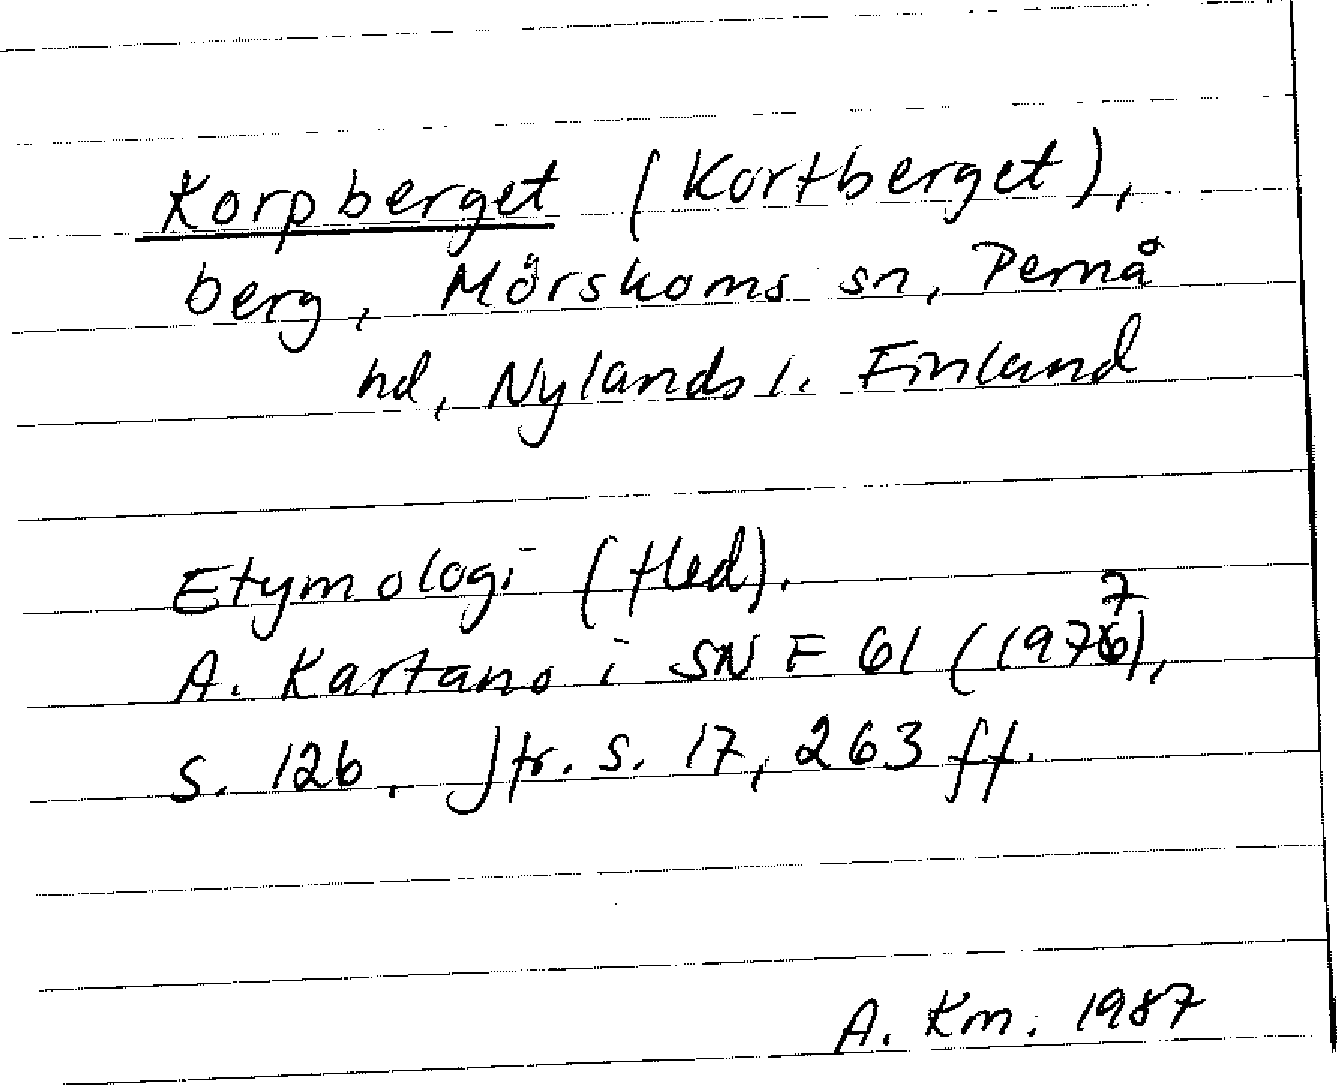 Korpberget (Kortberget),
berg, Mörskoms sn, Pernå
hd, Nylands l. Finland
Etymologi (fled).
A. Kartano i SNF 61 (1977),
s. 126. Jfr. s. 17, 263 ff.
A. Km. 1987